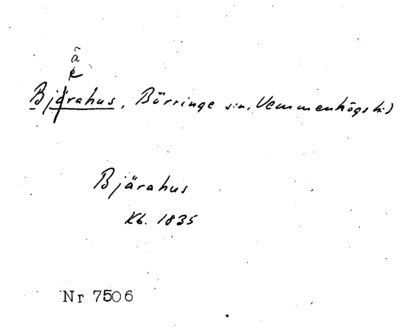 ä
e
Bjärahus, Börringe sn, Vemmenhögs hd
Bjärahus
Kb. 1835
Nr 7506